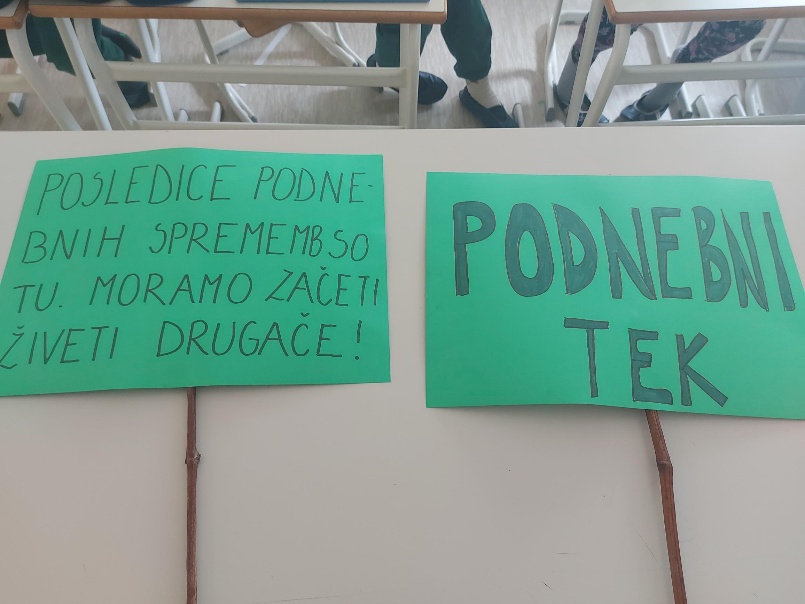 POSLEDICE PODNE-
BNIH SPREMEMB SO
TU. MORAMO ZAČETI
ŽIVETI DRUGAČE!
PODNEBNI
TEK